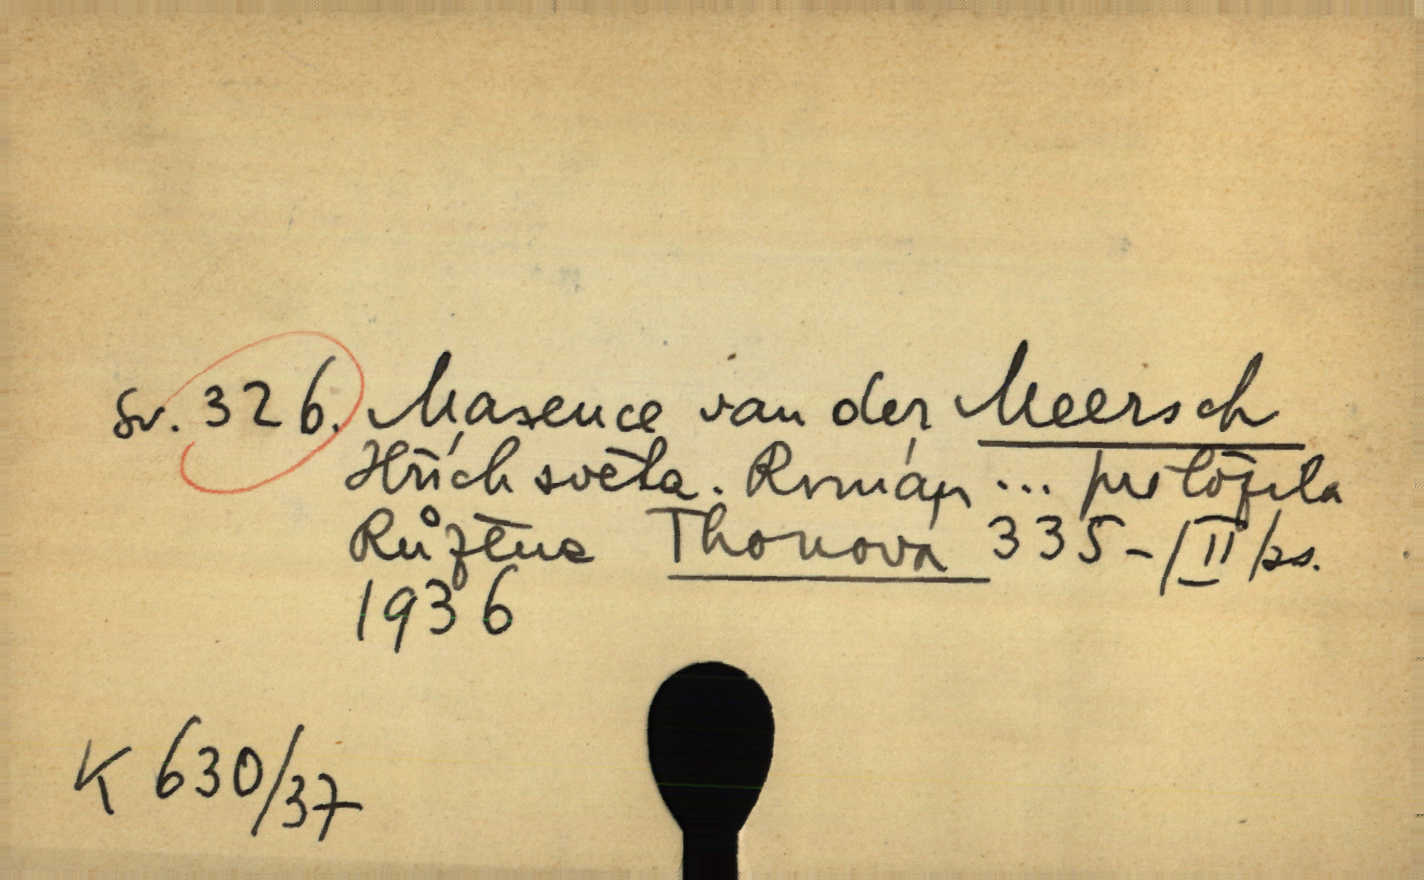 Sv. 326. Maxence van der Meersch
Hřích světa. Román ... přeložila
Růžena Thonová 335-/II/ss.
1936
K 630/37